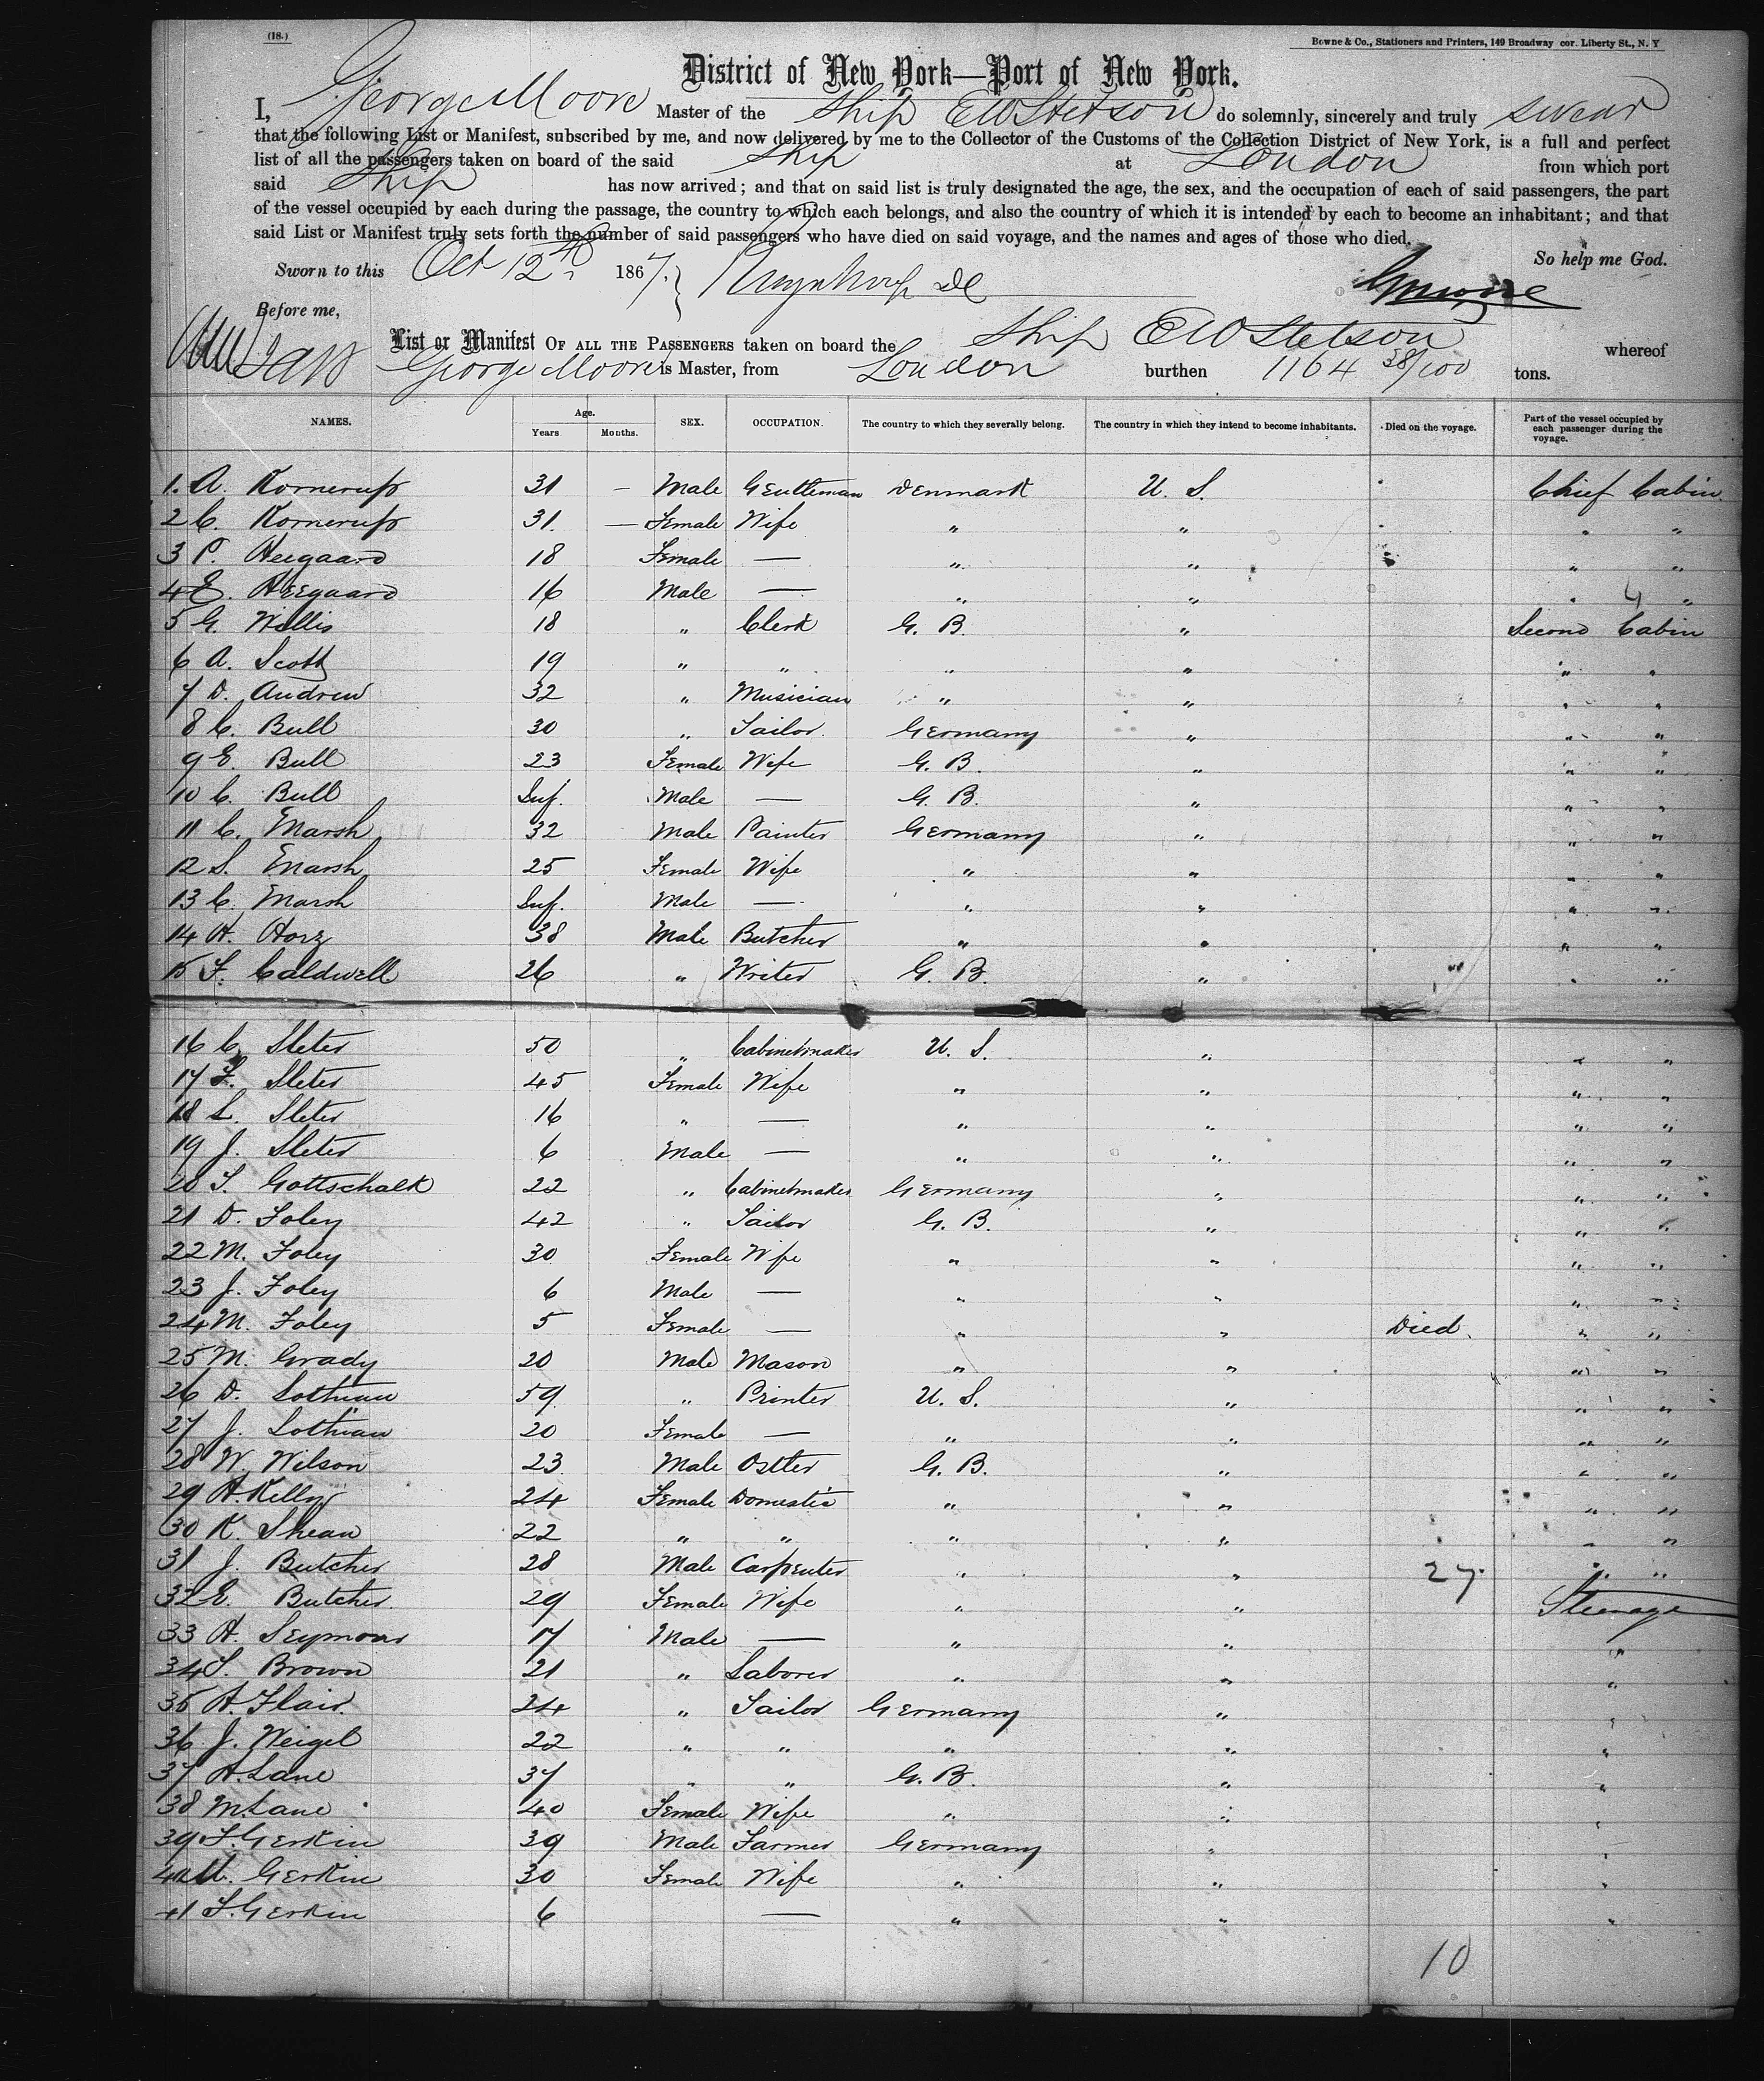 (18.)
Bowne & Co., Stationers and Printers, 149 Broadway cor. Liberty St., N. Y
District of New York—Port of New York.
I, George Moore Master of the Ship E W Stetson do solemnly, sincerely and truly swear
that the following List or Manifest, subscribed by me, and now delivered by me to the Collector of the Customs of the Collection District of New York, is a full and perfect
list of all the passengers taken on board of the said Ship at London from which port
said Ship has now arrived; and that on said list is truly designated the age, the sex, and the occupation of each of said passengers, the part
of the vessel occupied by each during the passage, the country to which each belongs, and also the country of which it is intended by each to become an inhabitant; and that
said List or Manifest truly sets forth the number of said passengers who have died on said voyage, and the names and ages of those who died.
So help me God.
Sworn to this Oct 12th 1867. GMoore
Before me,
List or Manifest OF ALL THE PASSENGERS taken on board the Ship E W Stetson whereof
George Moore is Master, from London burthen 1164 38/100 tons.
NAMES. Age. Years. Months. SEX. OCCUPATION. The country to which they severally belong. The country in which they intend to become inhabitants. Died on the voyage. Part of the vessel occupied by each passenger during the voyage.
1. A. Kornerup 31 — Male Gentleman Denmark U. S. Chief Cabin
2 C. Kornerup 31. — Female Wife " " " "
3 P. Heegaard 18 Female — " " " "
4 E. Heegaard 16 Male — " " " 4 "
5 G. Willis 18 " Clerk G. B. " Second Cabin
6 A. Scott 19 " " " " " "
7 D. Andrew 32 " Musician " " " "
8 C. Bull 30 " Tailor Germany " " "
9 E. Bull 23 Female Wife G. B. " " "
10 C. Bull Inf. Male — G. B. " " "
11 C. Marsh 32 Male Painter Germany " " "
12 S. Marsh 25 Female Wife " " " "
13 C. Marsh Inf. Male — " " " "
14 H. Horz 38 Male Butcher " " " "
15 F. Caldwell 26 " Writer G. B. " " "
16 C. Sleter 50 " Cabinetmaker U. S. " " "
17 F. Sleter 45 Female Wife " " " "
18 L. Sleter 16 " — " " " "
19 J. Sleter 6 Male — " " " "
20 S. Gottschalk 22 " Cabinetmaker Germany " " "
21 D. Foley 42 " Tailor G. B. " " "
22 M. Foley 30 Female Wife " " " "
23 J. Foley 6 Male — " " " "
24 M. Foley 5 Female — " " Died. " "
25 M. Grady 20 Male Mason " " " "
26 D. Lothian 59. " Printer U. S. " " "
27 J. Lothian 20 Female — " " " "
28 W. Wilson 23 Male Ostler G. B. " " "
29 H. Kelly 24 Female Domestic " " " "
30 K. Shean 22 " " " " " "
31 J. Butcher 28 Male Carpenter " " 27. " "
32 E. Butcher. 29 Female Wife " " Steerage
33 H. Seymour 17 Male — " " "
34 S. Brown 21 " Laborer " " "
35 H. Flair. 24 " Tailor Germany " "
36 J. Weigel 22 " " " " "
37 H. Lane 37 " " G. B. " "
38 M Lane 40 Female Wife " " "
39 F. Gerkin 39 Male Farmer Germany " "
40 M. Gerkin 30 Female Wife " " "
41 F. Gerkin 6 — " " "
10